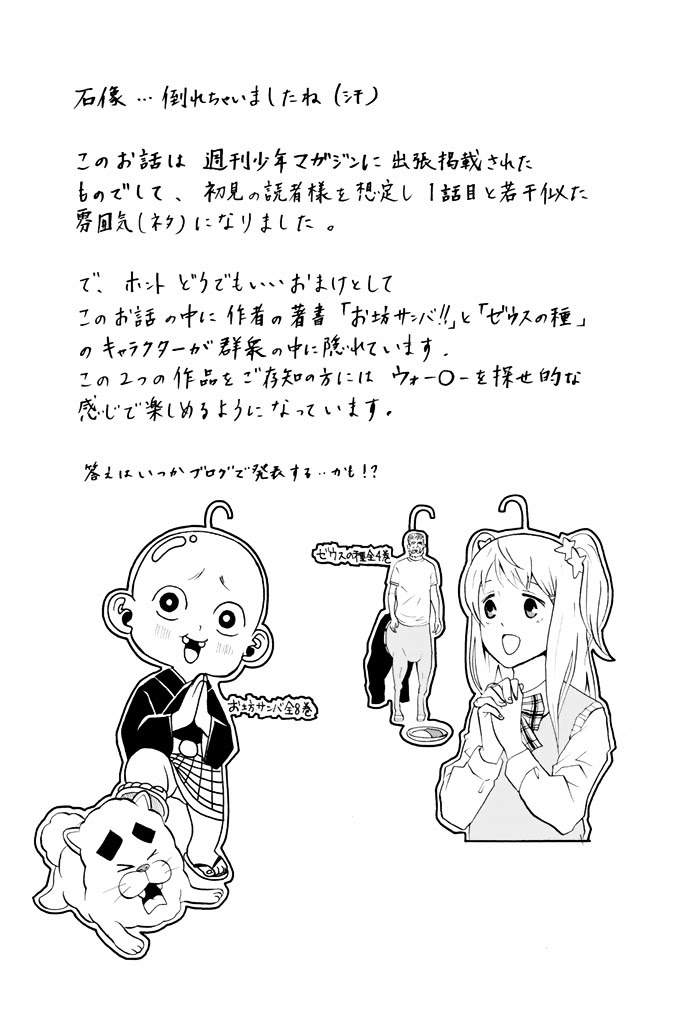 石像…倒れちゃいましたね(汗)
このお話は 週刊少年マガジンに 出張掲載された
ものでして、初見の読者様を想定し 1話目と若干似た
雰囲気(ネタ)になりました。
で、ホント どうでもいいおまけとして
このお話の中に 作者の著書「お坊サンバ!!」と「ゼウスの種」
のキャラクターが群衆の中に隠れています.
この2つの作品をご存知の方には ウォー〇ーを探せ的な
感じで楽しめるようになっています。
答えはいつかブログで発表する‥かも!?
ゼウスの種全4巻
お坊サンバ全8巻